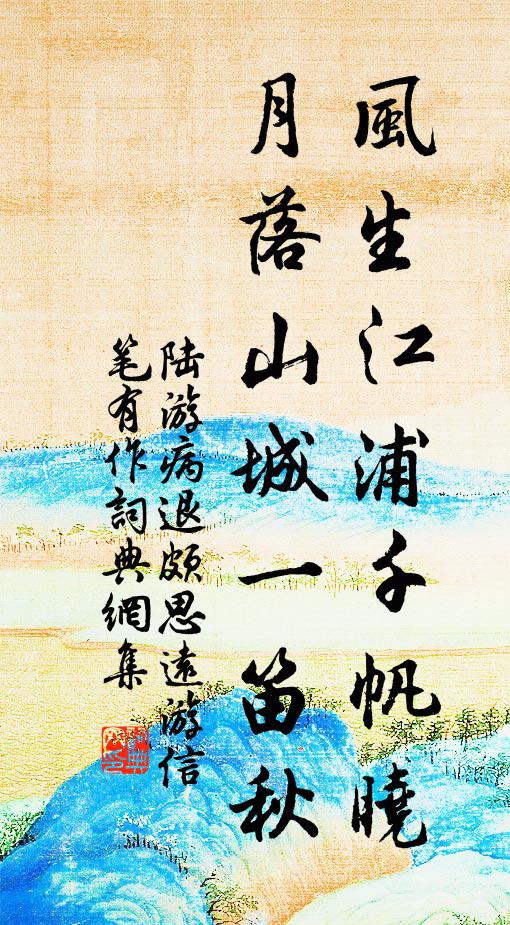 風生江浦千帆曉
月落山城一笛秋
陆游病退頗思遠游信
笔有作詞典網集